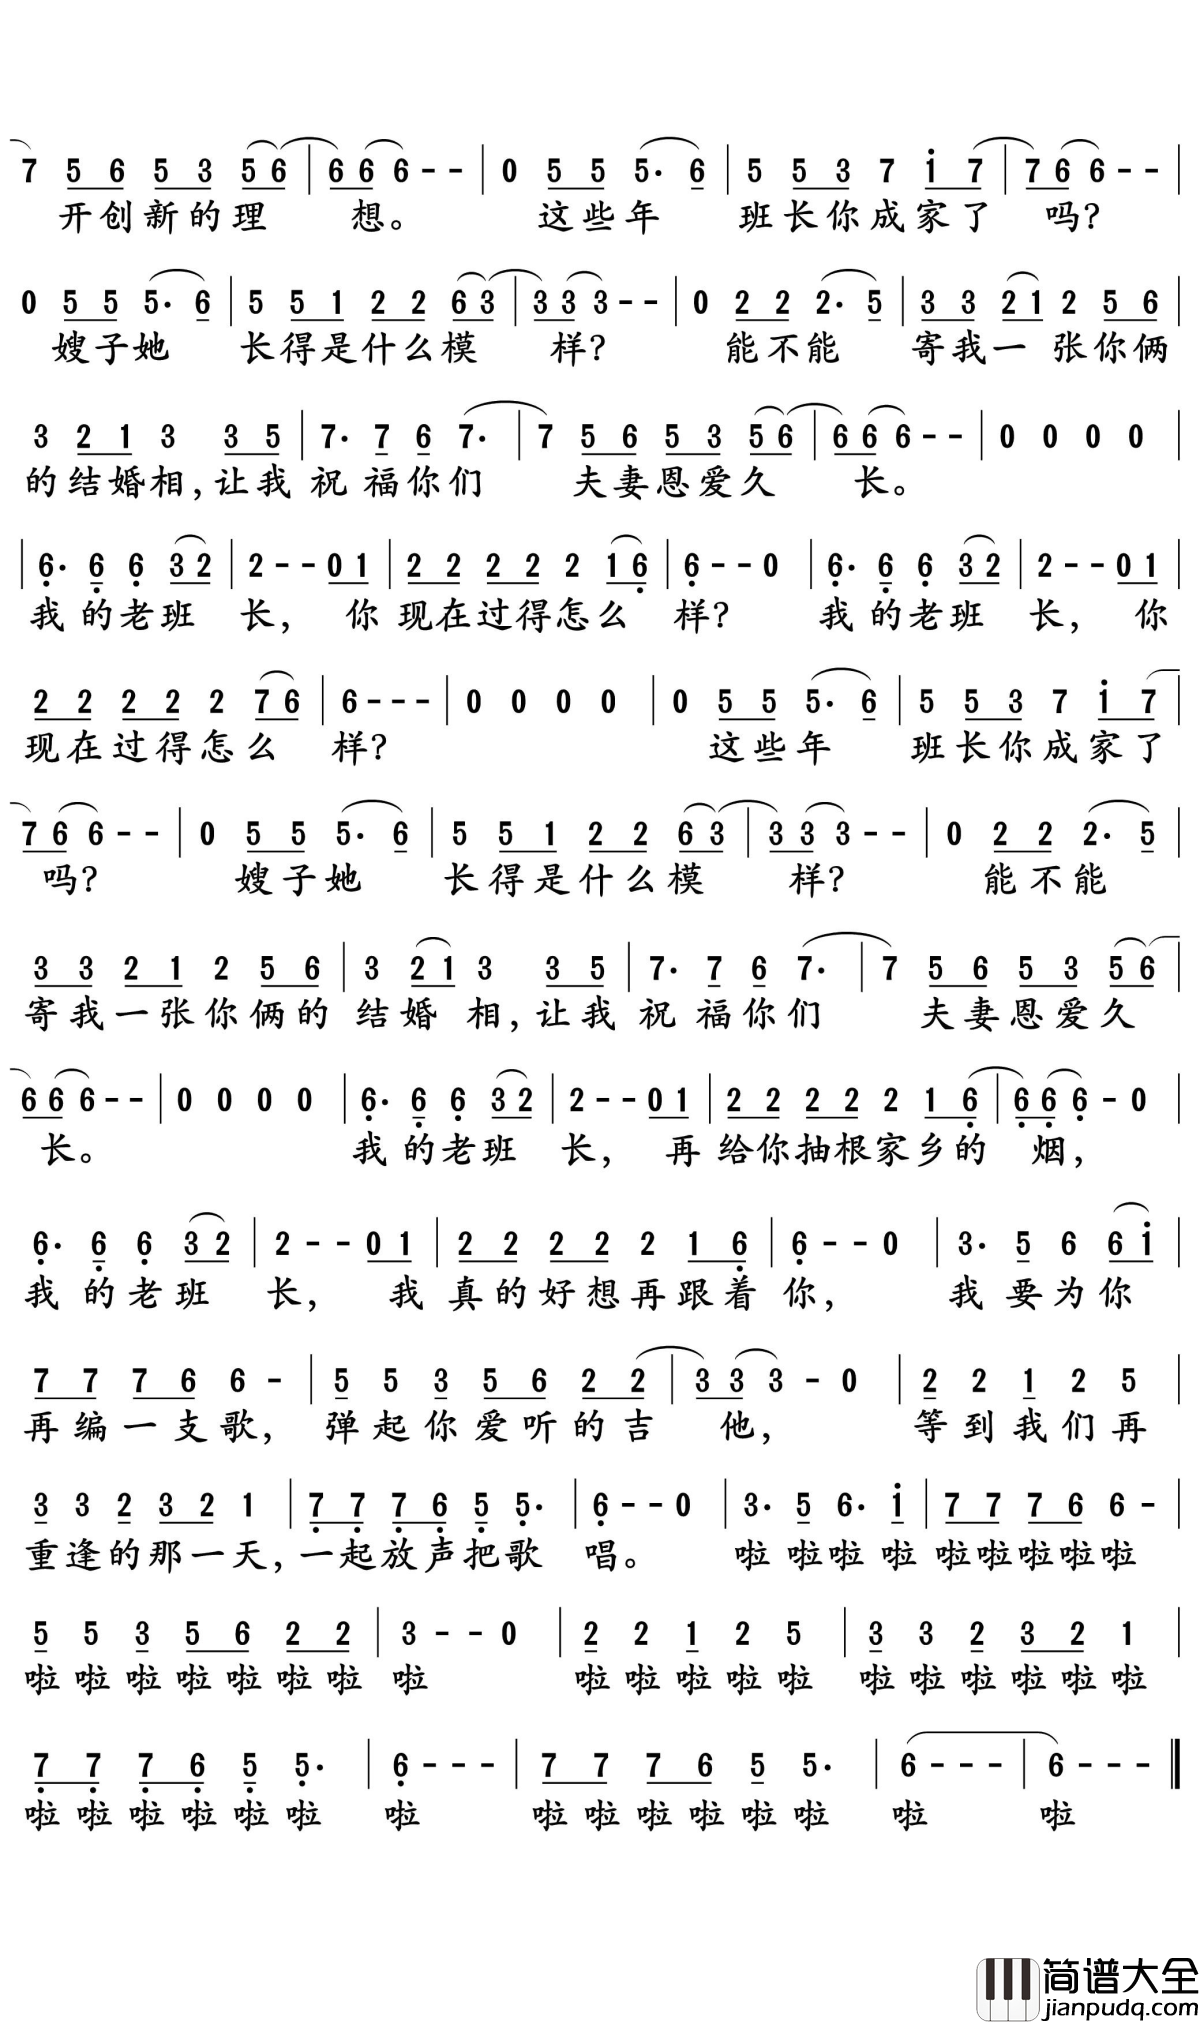 7 5 6 5 3 5 6 | 6 6 6 - - | 0 5 5 5· 6 | 5 5 3 7 i 7 | 7 6 6 - - |
开创新的理 想。 这些年 班长你成家了 吗?
0 5 5 5· 6 | 5 5 1 2 2 6 3 | 3 3 3 - - | 0 2 2 2· 5 | 3 3 2 1 2 5 6 |
嫂子她 长得是什么模 样? 能不能 寄我一 张你俩
3 2 1 3 3 5 | 7· 7 6 7· | 7 5 6 5 3 5 6 | 6 6 6 - - | 0 0 0 0 |
的结婚相,让我 祝 福你们 夫妻恩爱久 长。
| 6· 6 6 3 2 | 2 - - 0 1 | 2 2 2 2 2 1 6 | 6 - - 0 | 6· 6 6 3 2 | 2 - - 0 1 |
我 的老班 长, 你 现在过得怎么 样? 我 的老班 长, 你
2 2 2 2 2 7 6 | 6 - - - | 0 0 0 0 | 0 5 5 5· 6 | 5 5 3 7 i 7 |
现在过得怎么 样? 这些年 班长你成家了
7 6 6 - - | 0 5 5 5· 6 | 5 5 1 2 2 6 3 | 3 3 3 - - | 0 2 2 2· 5 |
吗? 嫂子她 长得是什么模 样? 能不能
3 3 2 1 2 5 6 | 3 2 1 3 3 5 | 7· 7 6 7· | 7 5 6 5 3 5 6 |
寄我一张你俩的 结婚 相,让我 祝 福你们 夫妻恩爱久
6 6 6 - - | 0 0 0 0 | 6· 6 6 3 2 | 2 - - 0 1 | 2 2 2 2 2 1 6 | 6 6 6 - 0 |
长。 我 的老班 长, 再 给你抽根家乡的 烟,
6· 6 6 3 2 | 2 - - 0 1 | 2 2 2 2 2 1 6 | 6 - - 0 | 3· 5 6 6 i |
我 的老班 长, 我 真的好想再跟着 你, 我 要为你
7 7 7 6 6 - | 5 5 3 5 6 2 2 | 3 3 3 - 0 | 2 2 1 2 5 |
再编一支歌, 弹起你爱听的吉 他, 等到我们再
3 3 2 3 2 1 | 7 7 7 6 5 5· | 6 - - 0 | 3· 5 6· i | 7 7 7 6 6 - |
重逢的那一天,一起放声把歌 唱。 啦 啦啦 啦 啦啦啦啦啦
5 5 3 5 6 2 2 | 3 - - 0 | 2 2 1 2 5 | 3 3 2 3 2 1 |
啦啦啦啦啦啦啦 啦 啦啦啦啦啦 啦啦啦啦啦啦
7 7 7 6 5 5· | 6 - - - | 7 7 7 6 5 5· | 6 - - - | 6 - - - ‖
啦啦啦啦啦啦 啦 啦啦啦啦啦啦 啦 啦
简谱大全
jianpudq.com